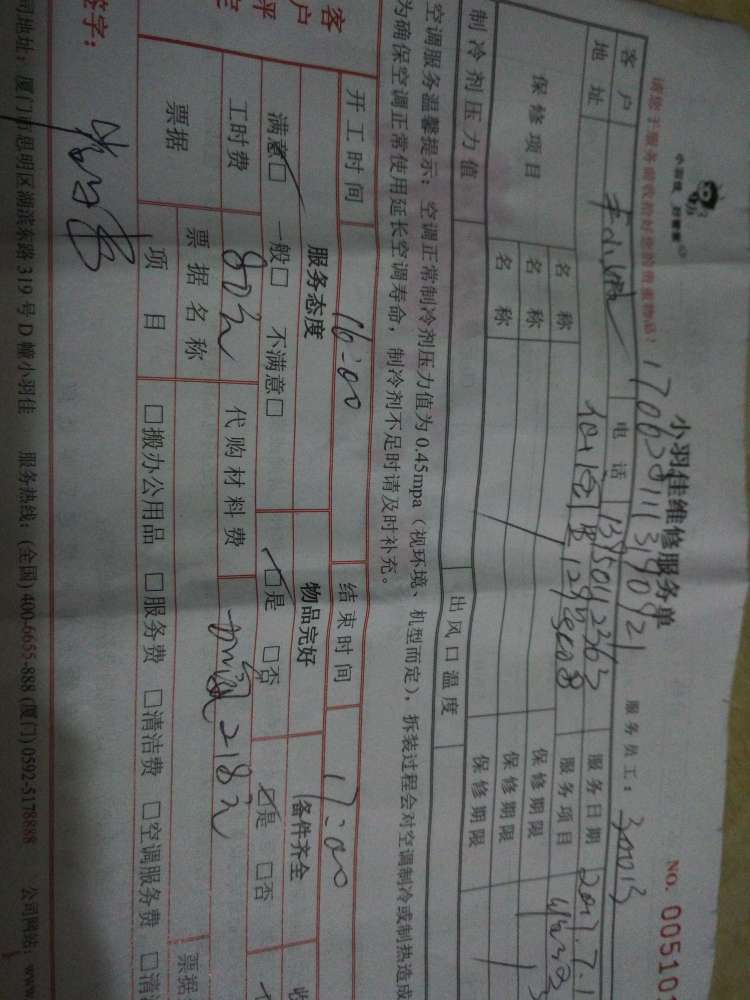 请您于服务前收拾好您的贵重物品!
小羽佳维修服务单
NO. 00510
1706281113190921
服务员工:
客户
电话
13950042363
服务日期
2017.7.1
地址
服务项目
保修项目
名称
保修期限
名称
保修期限
名称
保修期限
制冷剂压力值
出风口温度
空调服务温馨提示:空调正常制冷剂压力值为0.45mpa(视环境、机型而定),拆装过程会对空调制冷或制热造成
为确保空调正常使用延长空调寿命,制冷剂不足时请及时补充。
开工时间
16:00
结束时间
17:00
客户
服务态度
物品完好
备件齐全
满意□ 一般□ 不满意□
□是 □否
□是 □否
工时费
80元
代购材料费
218元
票据
票据名称
票据
项目
□搬办公用品 □服务费 □清洁费 □空调服务费 □清
签字:
司地址:厦门市思明区湖滨东路319号D幢小羽佳 服务热线:(全国) 400-6655-888 (厦门) 0592-5178888 公司网站:www